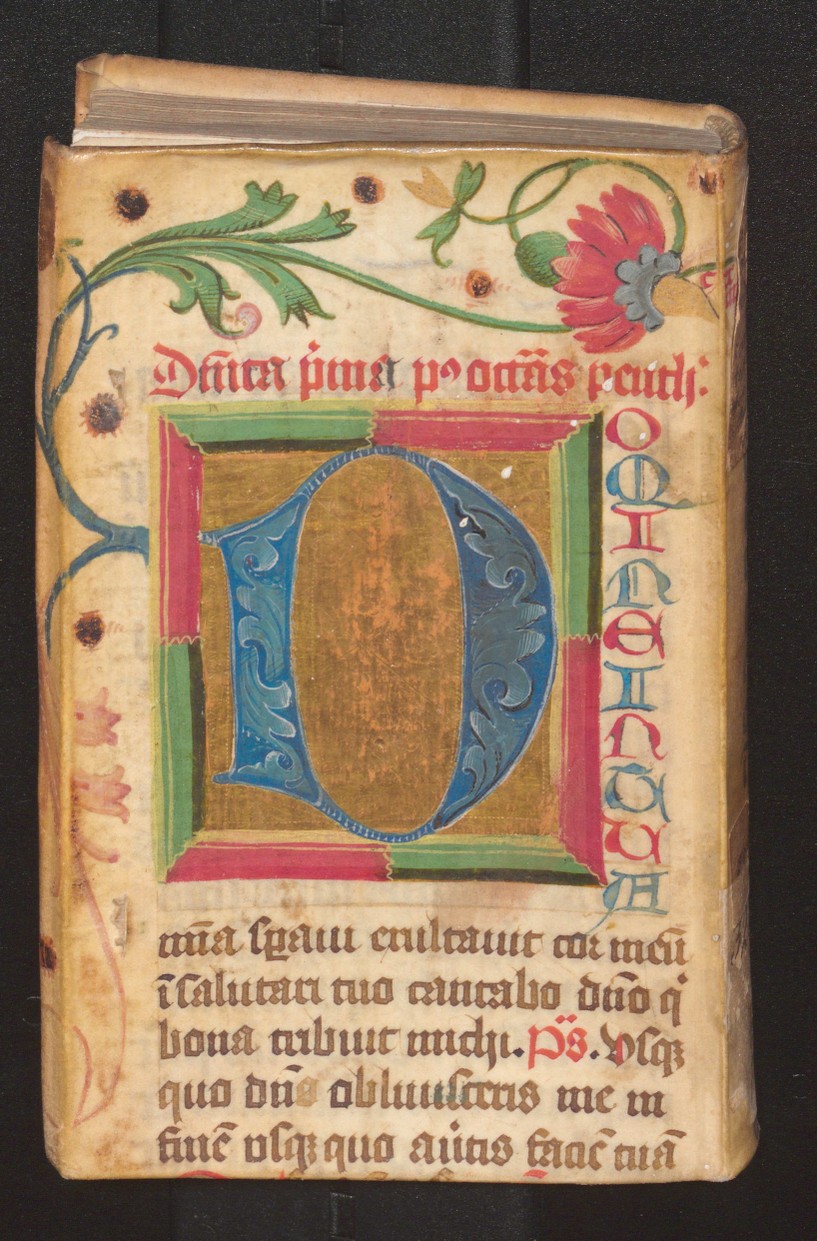 Dn̄ica p̄ima pꝰ octa᷒s penth:
D
O
Q
I
N
E
I
N
T
U
A
mīa ſꝑaui exultauit cor meū
ī ſalutari tuo cantabo dn̄o qͥ
bona tribuit michi. p̄s. Vſqꝫ
quo dn̄e obliuiſceris me in
finē vſqꝫ quo au̇tis faciē tuā